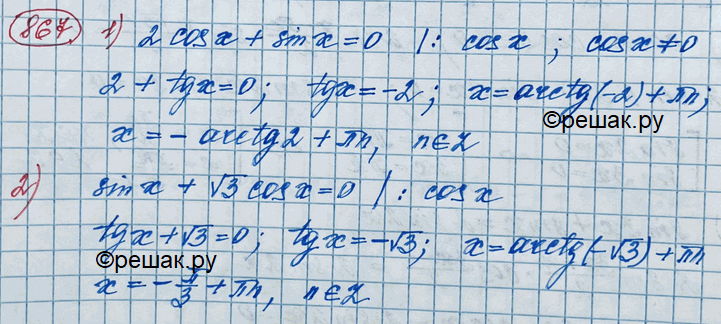 867. 1) 2 cosx + sinx = 0 |: cosx ; cosx≠0
2 + tgx = 0; tgx = -2; x = arctg(-2) + πn;
©решак.ру
x = - arctg2 + πn, n∈Z
2) sinx + √3 cosx = 0 |: cosx
tgx + √3 = 0; tgx = -√3; x = arctg(-√3) + πn
©решак.ру
x = - π/3 + πn, n∈Z